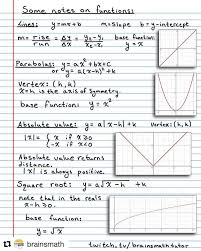 Some notes on functions:
Lines: y=mx+b m=slope b=y-intercept
m = rise/run = Δy/Δx = y₂-y₁/x₂-x₁ base function: y=x
Parabolas: y=ax²+bx+c
or y=a(x-h)²+k
Vertex: (h,k)
x=h is the axis of symmetry.
base function: y=x²
Absolute value: y=a|x-h|+k Vertex: (h,k)
|x|= { x if x≥0
-x if x<0
Absolute value returns
distance.
|x| is always positive.
Square root: y=a√x-h +k
note that in the reals
x-h≥0.
base function:
y=√x
brainsmath
twitch.tv/brainsmathtutor